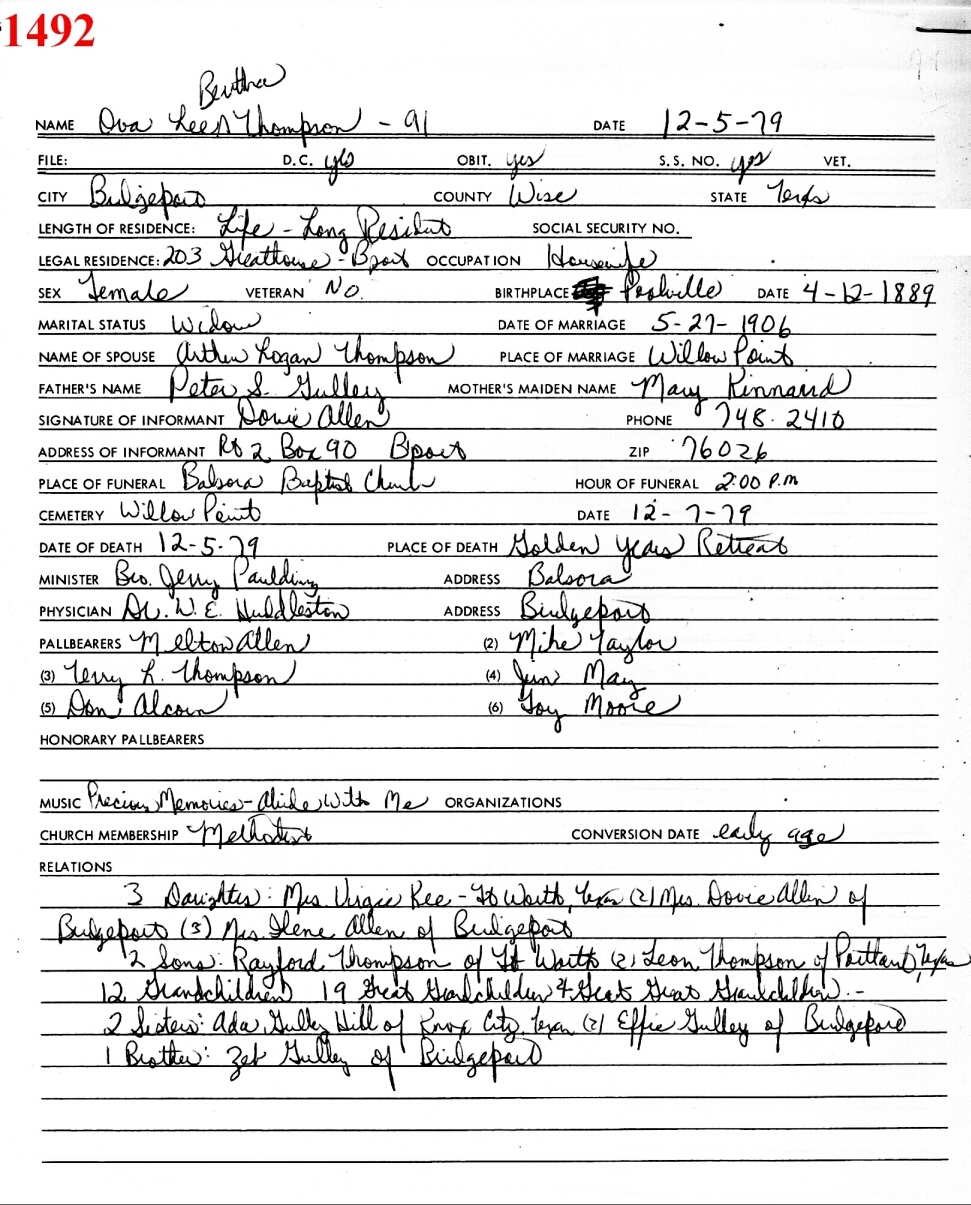 1492
Bertha
NAME Ova Lee Thompson - 91 DATE 12-5-79
FILE: D.C. yes OBIT. yes S.S. NO. yes VET.
CITY Bridgeport COUNTY Wise STATE Texas
LENGTH OF RESIDENCE: Life-Long Resident SOCIAL SECURITY NO.
LEGAL RESIDENCE: 203 Greathouse - Bport OCCUPATION Housewife
SEX Female VETERAN No BIRTHPLACE Poolville DATE 4-12-1889
MARITAL STATUS Widow DATE OF MARRIAGE 5-27-1906
NAME OF SPOUSE Arthur Logan Thompson PLACE OF MARRIAGE Willow Point
FATHER'S NAME Peter S. Gulley MOTHER'S MAIDEN NAME Mary Kinnaird
SIGNATURE OF INFORMANT Dovie Allen PHONE 748-2410
ADDRESS OF INFORMANT Rt 2 Box 90 Bport ZIP 76026
PLACE OF FUNERAL Balsora Baptist Church HOUR OF FUNERAL 2:00 P.M
CEMETERY Willow Point DATE 12-7-79
DATE OF DEATH 12-5-79 PLACE OF DEATH Golden Years Retreat
MINISTER Bro. Jerry Paulding ADDRESS Balsora
PHYSICIAN Dr. W. E. Huddleston ADDRESS Bridgeport
PALLBEARERS Melton Allen (2) Mike Taylor
(3) Terry L. Thompson (4) Jim May
(5) Don Alcorn (6) Toy Moore
HONORARY PALLBEARERS
MUSIC Precious Memories - Abide With Me ORGANIZATIONS
CHURCH MEMBERSHIP Methodist CONVERSION DATE early age
RELATIONS
3 Daughters: Mrs. Virgie Kee - Ft Worth, Texas (2) Mrs. Dovie Allen of
Bridgeport (3) Mrs. Ilene Allen of Bridgeport
2 Sons: Rayford Thompson of Ft Worth (2) Leon Thompson of Portland, Texas
12 Grandchildren 19 Great Grandchildren 4 Great Great Grandchildren.-
2 Sisters: Ada Gulley Hill of Knox City, Texas (2) Effie Gulley of Bridgeport
1 Brother: Zeb Gulley of Bridgeport